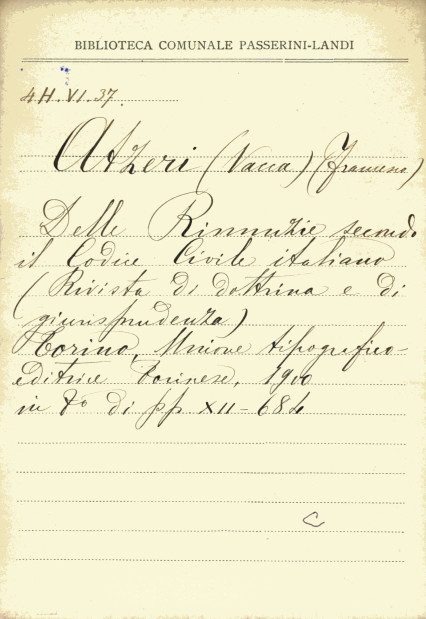 BIBLIOTECA COMUNALE PASSERINI-LANDI
4H.VI.37
Atzeri (Vacca) (Francesco)
Delle Rinunzie secondo
il Codice Civile italiano
(Rivista di dottrina e di
giurisprudenza)
Torino, Unione tipografico-
editrice torinese, 1900
in 8º di pp XII-684
C